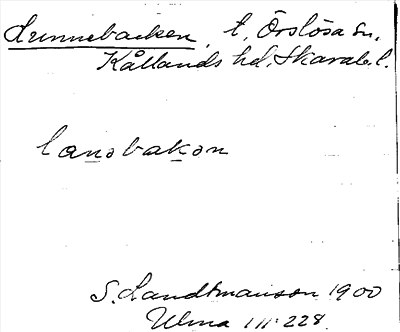 Lunnebacken, t. Örslösa sn,
Kållands hd, Skarab.l.
lanəbakən
S. Landtmanson 1900
Ulma 111:228.